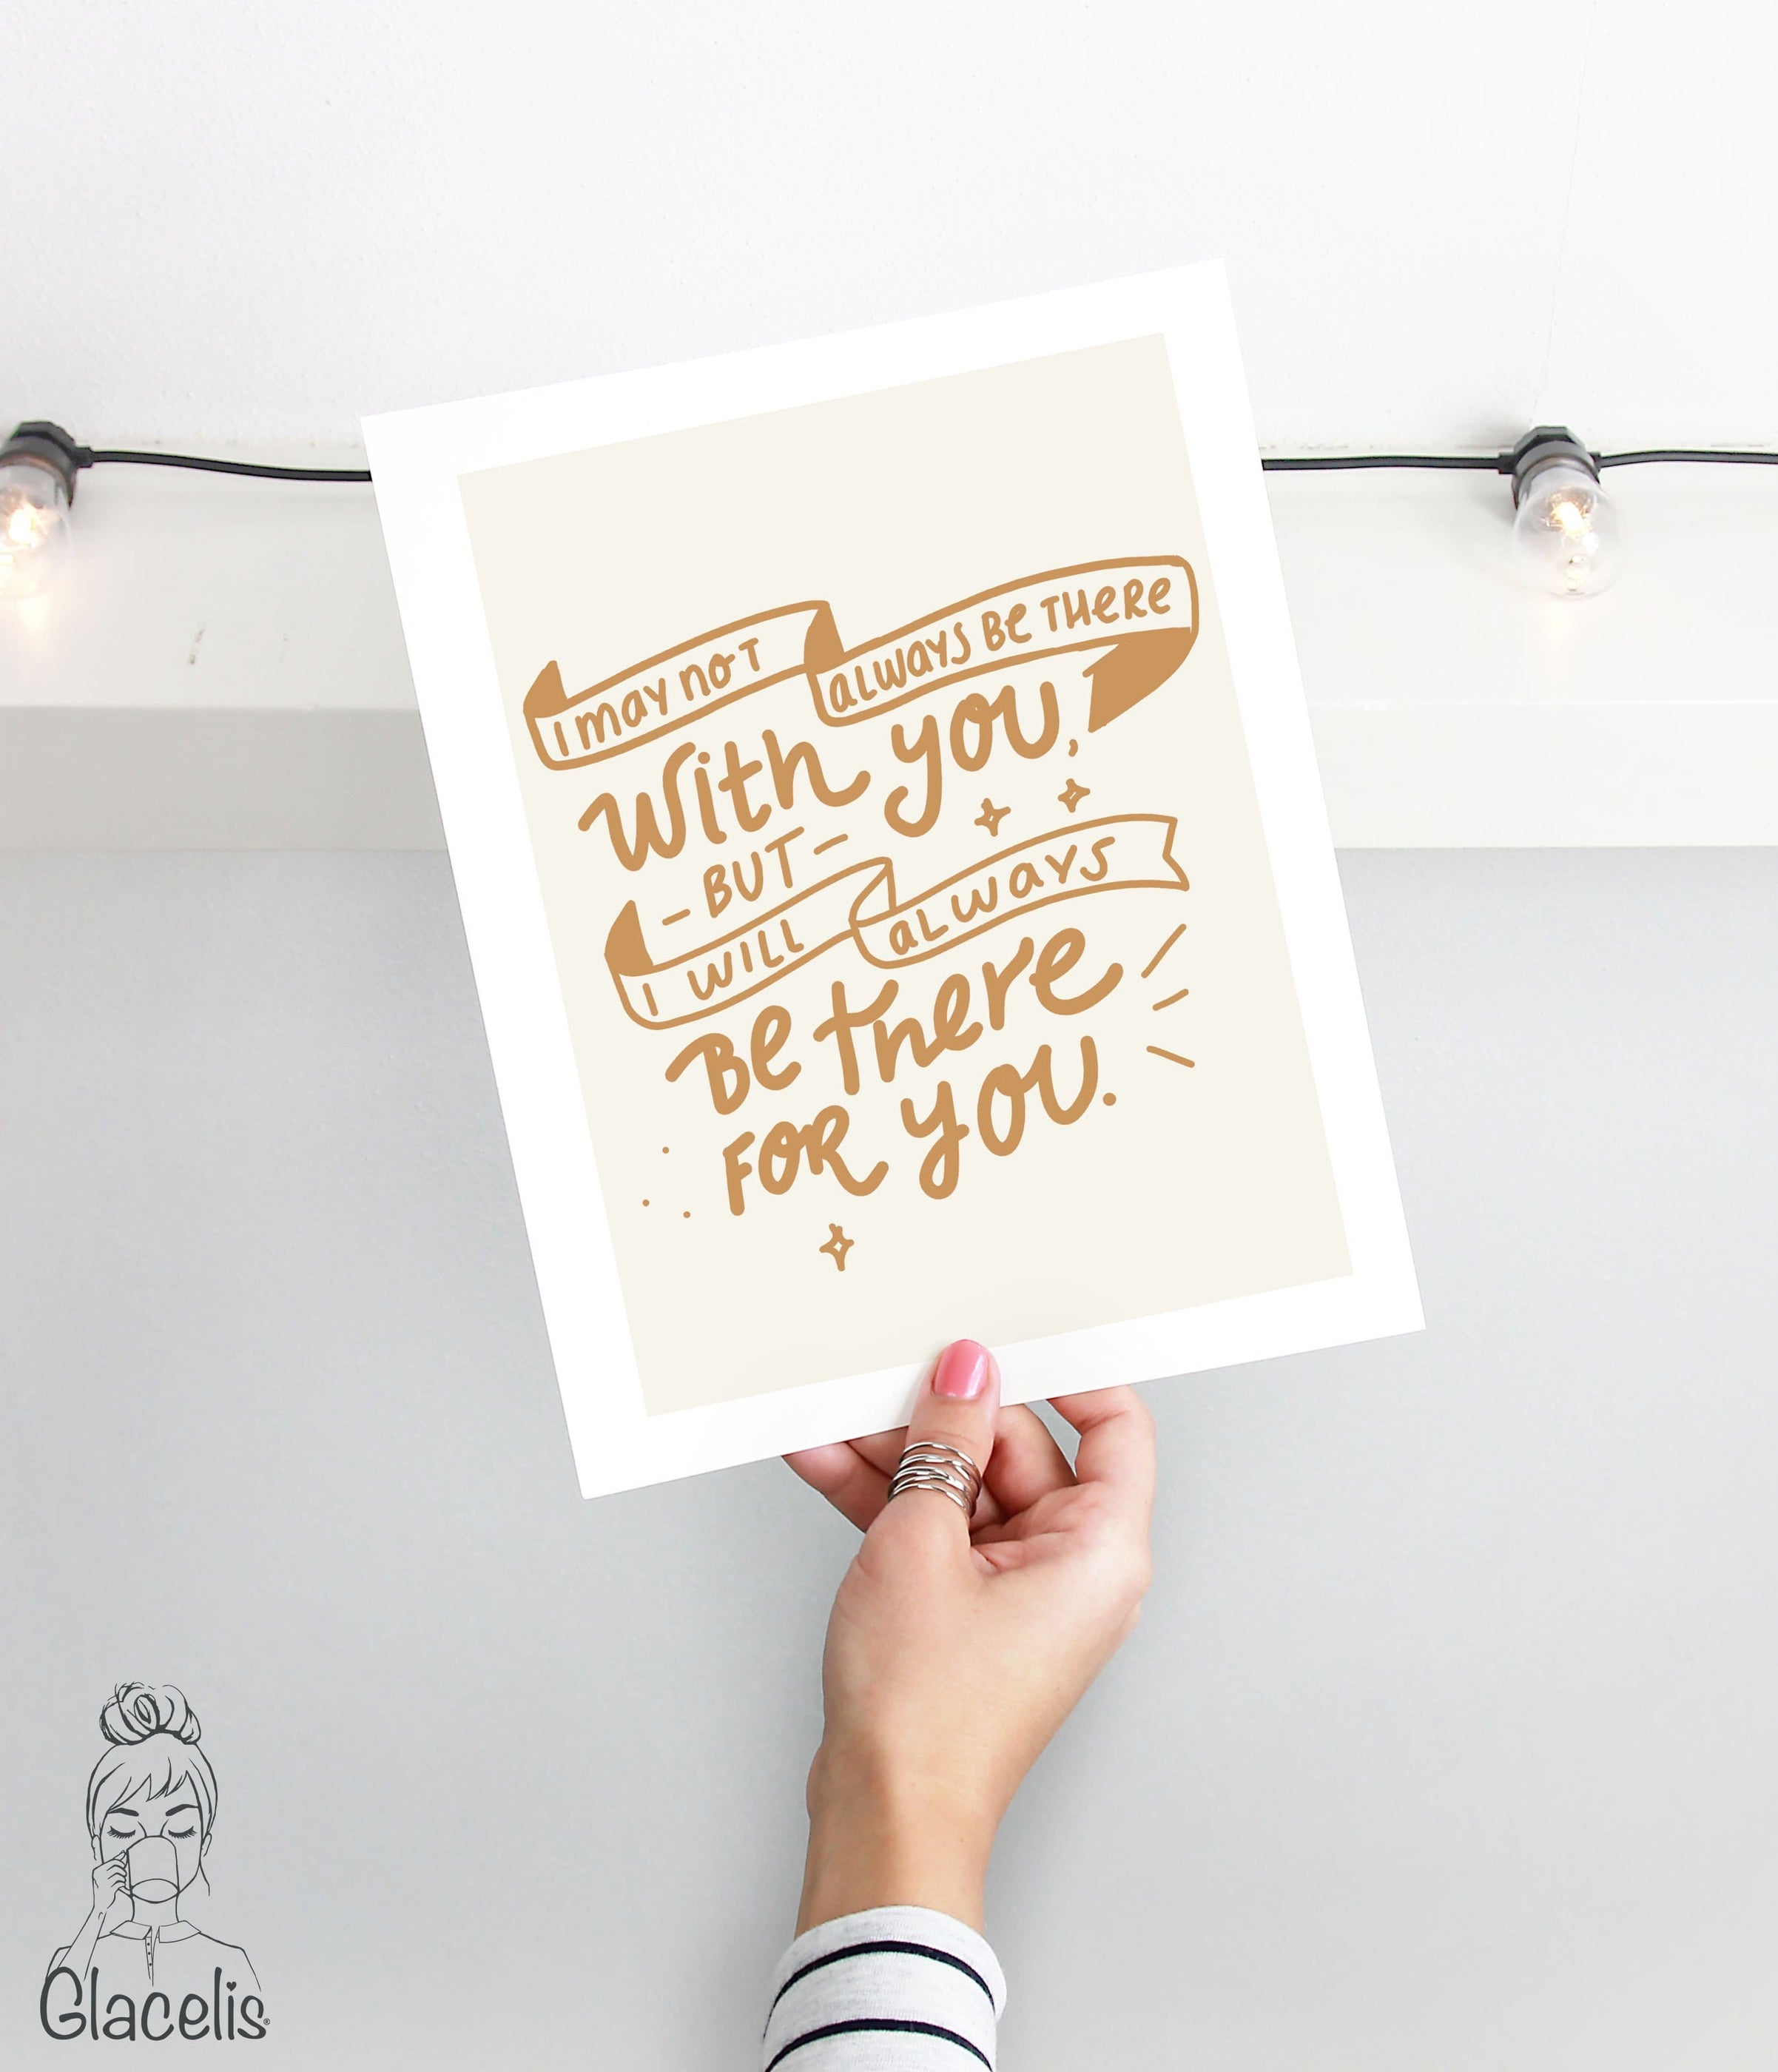 I may not always be there
With you,
- BUT -
I WILL always
Be there
FOR you.
Glacelis®